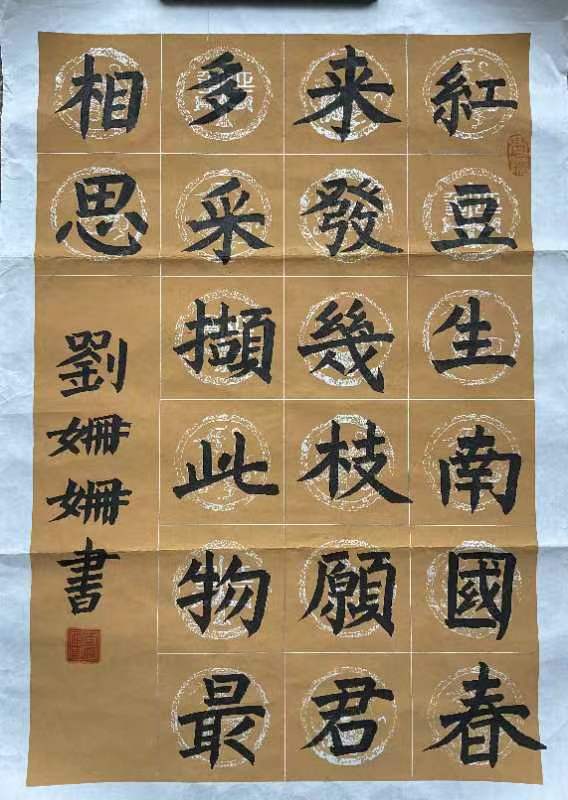 紅豆生南國春
来發幾枝願君
多采擷此物最
相思
劉姍姍書